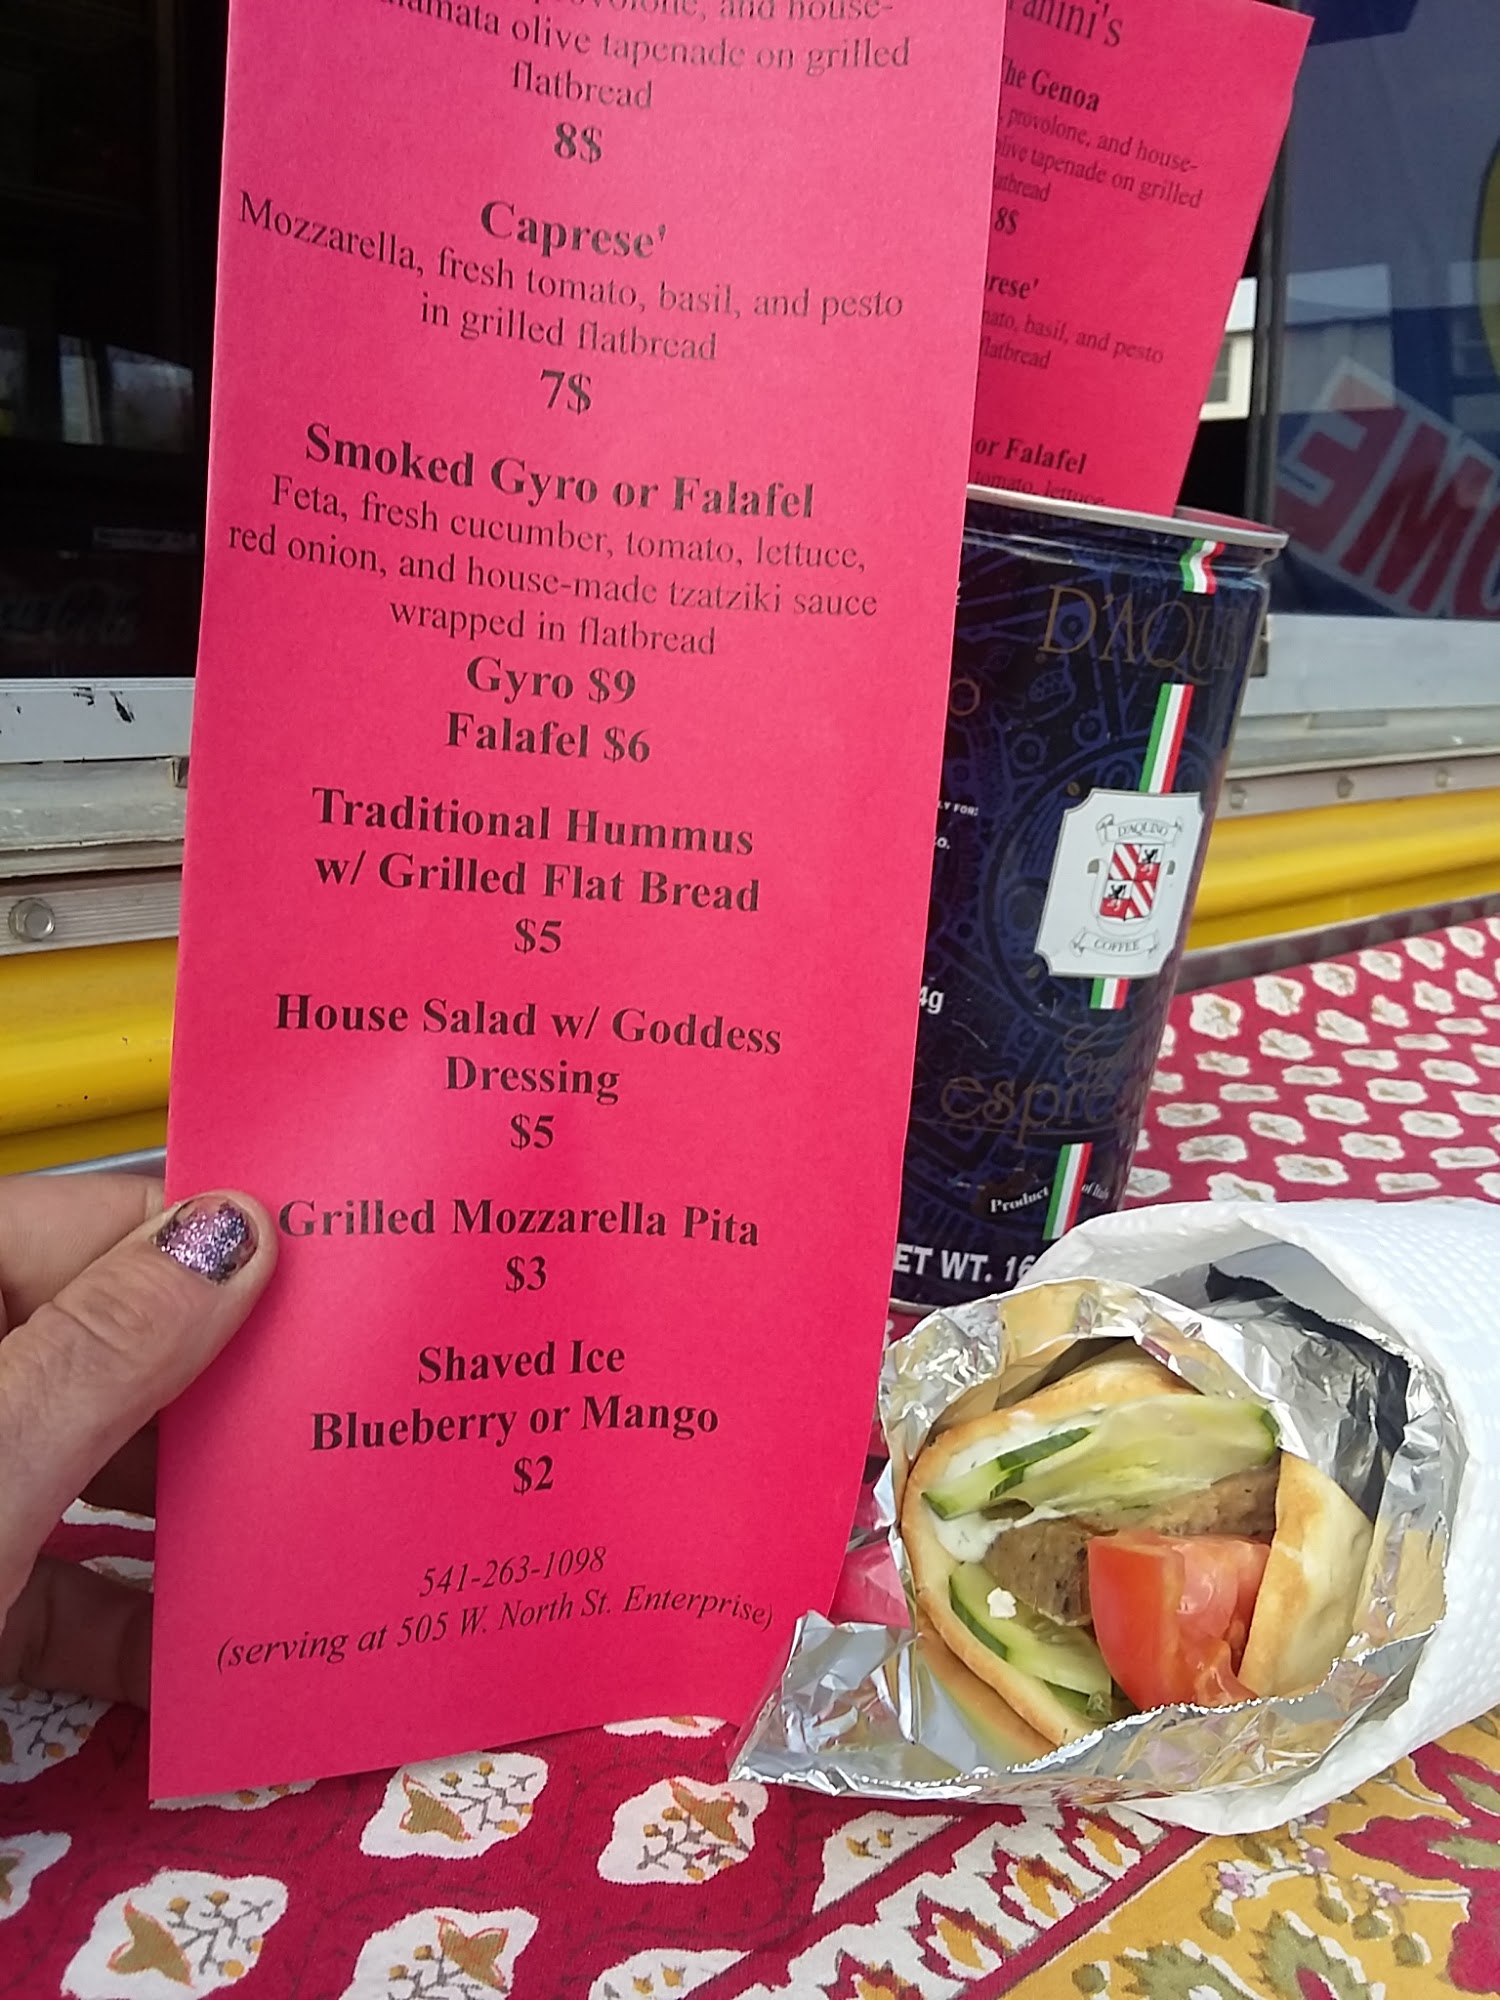 and house-
olive tapenade on grilled
flatbread
8$
Caprese'
Mozzarella, fresh tomato, basil, and pesto
in grilled flatbread
7$
Smoked Gyro or Falafel
Feta, fresh cucumber, tomato, lettuce,
red onion, and house-made tzatziki sauce
wrapped in flatbread
Gyro $9
Falafel $6
Traditional Hummus
w/ Grilled Flat Bread
$5
House Salad w/ Goddess
Dressing
$5
Grilled Mozzarella Pita
$3
Shaved Ice
Blueberry or Mango
$2
541-263-1098
(serving at 505 W. North St. Enterprise)
Genoa
provolone, and house-
tapenade on grilled
8$
basil, and pesto
or Falafel
tomato, lettuce
D'AQUINO
COFFEE
Product of Italy
WT. 16